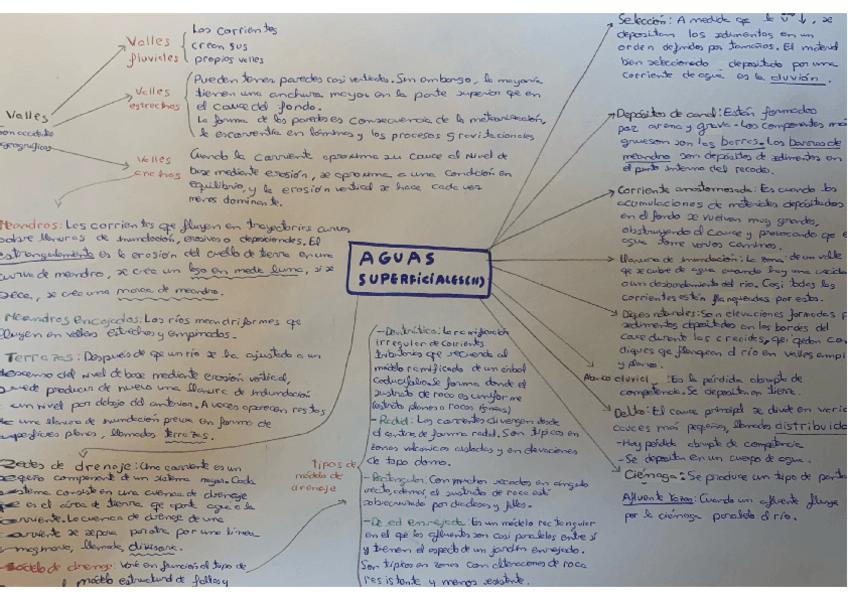 AGUAS
SUPERFICIALES(II)
Valles
son accidentes
geográficos
Valles
fluviales
Las corrientes
crean sus
propios valles
Valles
estrechos
Pueden tener paredes casi verticales. Sin embargo, la mayoría
tienen una anchura mayor en la parte superior que en
el cauce del fondo.
La forma de las paredes es consecuencia de la meteorización,
la escorrentía en láminas y los procesos gravitacionales
Valles
anchos
Cuando la corriente aproxima su cauce al nivel de
base mediante erosión, se aproxima a una condición en
equilibrio, y la erosión vertical se hace cada vez
menos dominante.
Meandros: Las corrientes que fluyen en trayectorias curvas
sobre llanuras de inundación, erosivas o deposicionales. El
estrangulamiento es la erosión del cuello de tierra en una
curva de meandro, se crea un lago en media luna, si se
seca, se crea una marca de meandro.
Meandros encajados: Los ríos meandriformes que
fluyen en valles estrechos y empinados.
Terrazas: Después de que un río se ha ajustado a un
descenso del nivel de base mediante erosión vertical,
puede producir de nuevo una llanura de inundación
a un nivel por debajo del anterior. A veces aparecen restos
de una llanura de inundación previa en forma de
superficies planas, llamadas terrazas.
Redes de drenaje: Una corriente es un
pequeño componente de un sistema mayor. Cada
sistema consiste en una cuenca de drenaje
que es el área de tierra que aporta agua a la
corriente. La cuenca de drenaje de una
corriente se separa por otra por una línea
imaginaria, llamada, divisoria.
Modelo de drenaje: Varía en función del tipo de
modelo estructural de fallas y
Tipos de
modelo de
drenaje
-Dentrítica: La ramificación
irregular de corrientes
tributarias que recuerda al
modelo ramificado de un árbol
caducifolio. Se forma donde el
sustrato de roca es uniforme
(estrato planos o rocas ígneas)
-Radial: Las corrientes divergen desde
el centro de forma radial. Son típicos en
zonas volcánicas aisladas y en elevaciones
de tipo domo.
-Rectangular: Con muchos recodos en ángulo
recto, además, el sustrato de roca está
entrecruzado por diaclasas y fallas.
-De red enrejada: Es un modelo rectangular
en el que los afluentes son casi paralelos entre sí
y tienen el aspecto de un jardín enrejado.
Son típicos en zonas con alteraciones de roca
resistente y menos resistente.
Selección: A medida que la v ↓, se
depositan los sedimentos en un
orden definidos por tamaños. El material
bien seleccionado depositado por una
corriente de agua es la aluvión.
Depósitos de canal: Están formados
por arena y grava. Los componentes más
gruesos son las barras. Las barras de
meandro son depósitos de sedimentos en
el punto interno del recodo.
Corriente anastomosada: Es cuando las
acumulaciones de materiales depositados
en el fondo se vuelven muy grandes,
obstruyendo el cauce y provocando que el
agua tome varios caminos.
Llanura de inundación: La zona de un valle
que se cubre de agua cuando hay una crecida
o un desbordamiento del río. Casi todas las
corrientes están flanqueadas por estas.
Diques naturales: Son elevaciones formadas p
sedimentos depositados en los bordes del
cauce durante las crecidas, que quedan co
diques que flanquean el río en valles ampli
y planos.
Abanico aluvial: Es la pérdida abrupta de
competencia. Se deposita en tierra.
Delta: El cauce principal se divide en vario
cauces más pequeños, llamados distribuido
-Hay pérdida abrupta de competencia
-Se deposita en un cuerpo de agua.
Ciénaga: Se produce un tipo de pantano
Afluente Yazoo: Cuando un afluente fluye
por la ciénaga paralelo al río.